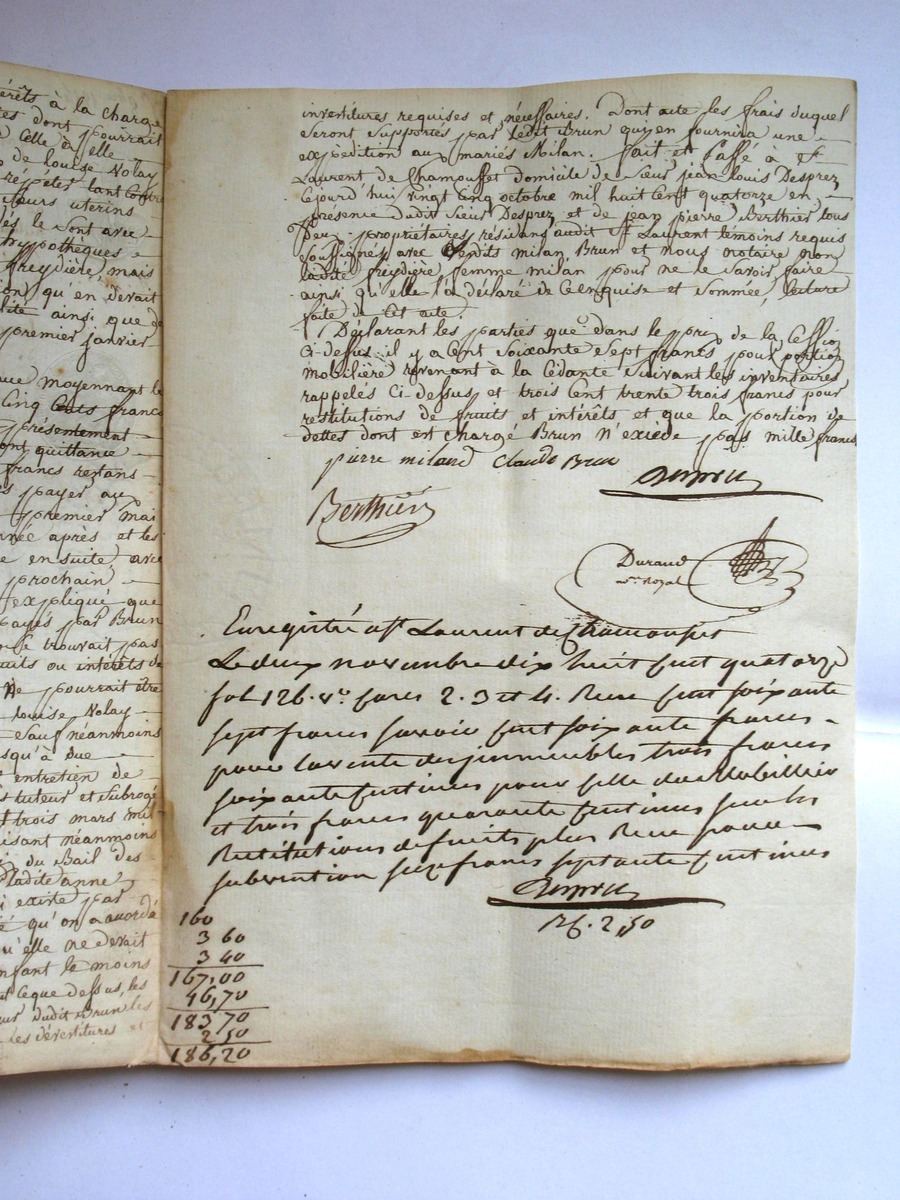 érêts à la charge
tes dont pourrait
Celle à elle
de louise Nolay
répéter tant contre
uterins
és le sont avec
hypothèques
freydière, mais
ion qu'en devait
lité ainsi que de
premier janvier
moyennant le
Cinq Cents francs
présentement
ont quittance
francs restans
s payer au
premier mai
née après et les
e en suite, avec
prochain
expliqué que
payés par Brun
se trouvait pas
ou intérêts de
Ne pourrait être
louise Nolay
sauf néanmoins
squ'à due
entretien de
tuteur et subrogé
trois mars mil
isant néanmoins
du Bail des
ladite anne
existe par
é qu'on a accordé
qu'elle ne devait
le moins
ceque dessus, les
dudit Brun les
les dévestitures et
investitures requises et nécessaires. Dont acte les frais duquel
seront supportés par ledit Brun qui en fournira une
expédition aux mariés Milan. fait et Passé à St
Laurent de Chamousset domicile de Sieur jean louis Desprez
Cejourd'hui vingt cinq octobre mil huit Cent quatorze en
présence dudit Sieur Desprez et de jean pierre Berthier tous
deux propriétaires résidans audit St Laurent témoins requis
soussignés avec lesdits milan, Brun et nous notaire non
ladite freydière femme milan pour ne le savoir faire
ainsi qu'elle l'a déclaré de Ce enquise et sommée, lecture
faite de Cet acte.
Déclarant les parties que dans le prix de la Cession
Ci-dessus il y a Cent soixante Sept francs pour portion
mobilière revenant à la Cédante suivant les inventaires
rappelés Ci-dessus et trois Cent trente trois francs pour
restitutions de fruits et intérêts et que la portion de
dettes dont est chargé Brun N'excède pas mille francs
pierre miland Claude Brun
Berthier
Durand
nre Royal
Enregistré à St Laurent de Chamousset
Le deux novembre dix huit cent quatorze
fol 126. vo. cases 2. 3 et 4. Reçu cent soixante
sept francs savoir cent soixante francs
pour la vente des immeubles trois francs
soixante centimes pour celle du Mobilier
et trois francs quarante centimes sur les
Restitutions de fruits plus Reçu pour
subvention seize francs septante centimes
Rf. 2,50
160
3 60
3 40
167,00
16,70
183 70
2 50
186,20